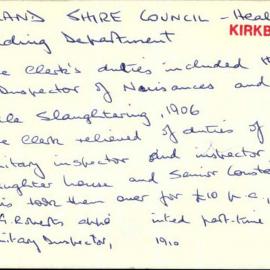 RLAND SHIRE COUNCIL - Heal
KIRKB
lding Department
e Clerk's duties included th
Inspector of Nuisances and
le Slaughtering, 1906
e Clerk relieved of duties of
itary inspector and inspector
ughter house and Senior Consta
is took them over for £10 p.a.,
G. Roberts appo inted part-time
itary Inspector, 1910